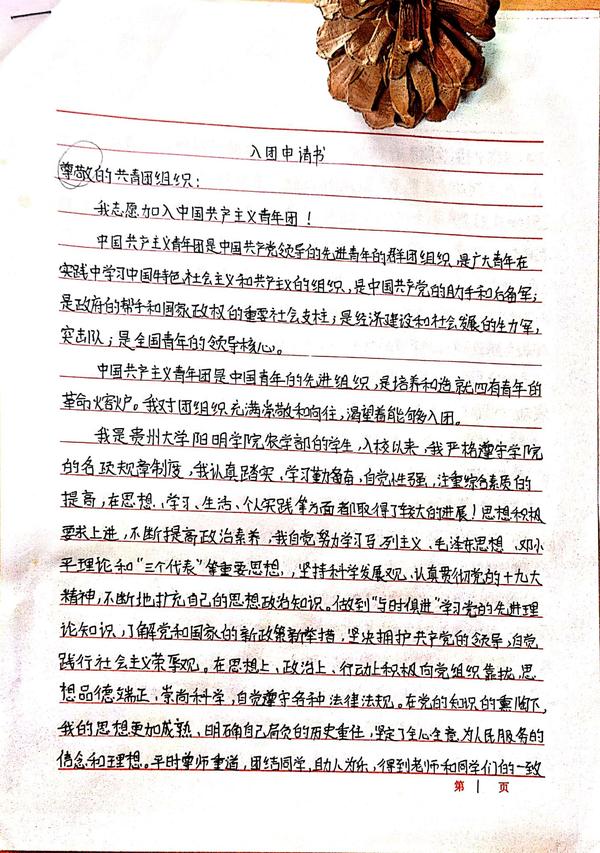 入团申请书
尊敬的共青团组织：
我志愿加入中国共产主义青年团！
中国共产主义青年团是中国共产党领导的先进青年的群团组织，是广大青年在
实践中学习中国特色社会主义和共产主义的组织，是中国共产党的助手和后备军；
是政府的帮手和国家政权的重要社会支柱；是经济建设和社会发展的生力军，
突击队；是全国青年的领导核心。
中国共产主义青年团是中国青年的先进组织，是培养和造就四有青年的
革命火熔炉。我对团组织充满崇敬和向往，渴望着能够入团。
我是贵州大学阳明学院农学部的学生，入校以来，我严格遵守学院
的各项规章制度，我认真踏实、学习勤奋，自觉性强，注重综合素质的
提高，在思想、学习、生活、个人实践等方面都取得了较大的进展！思想积极
要求上进，不断提高政治素养，我自觉努力学习马列主义、毛泽东思想、邓小
平理论和“三个代表”等重要思想，坚持科学发展观，认真贯彻党的十九大
精神，不断地扩充自己的思想政治知识。做到“与时俱进”学习党的先进理
论知识，了解党和国家的新政策新举措，坚决拥护共产党的领导，自觉
践行社会主义荣辱观。在思想上、政治上、行动上积极向党组织靠拢，思
想品德端正，崇尚科学，自觉遵守各种法律法规。在党的知识的熏陶下，
我的思想更加成熟、明确自己肩负的历史重任，坚定了全心全意为人民服务的
信念和理想。平时尊师重道，团结同学，助人为乐，得到老师和同学们的一致
第 1 页